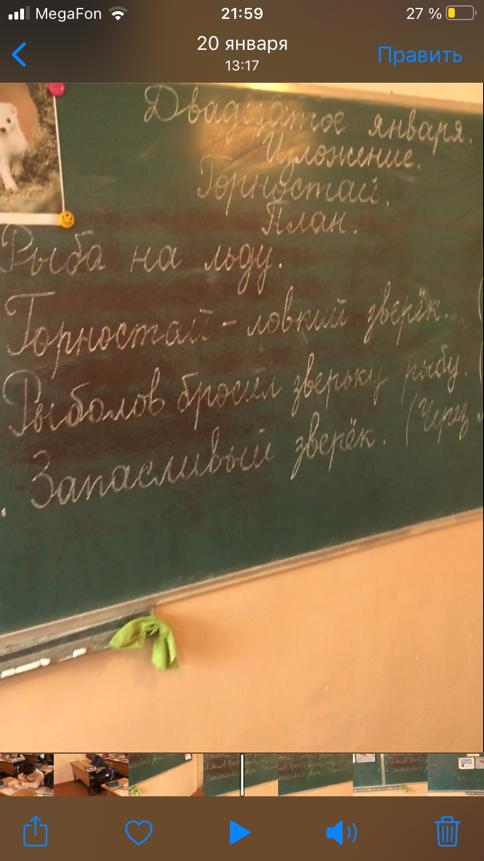 MegaFon 21:59 27 %
20 января
13:17
Править
Двадцатое января.
Изложение.
Горностай.
План.
Рыба на льду.
Горностай - ловкий зверёк. (
Рыболов бросил зверьку рыбу. (
Запасливый зверёк. (Через